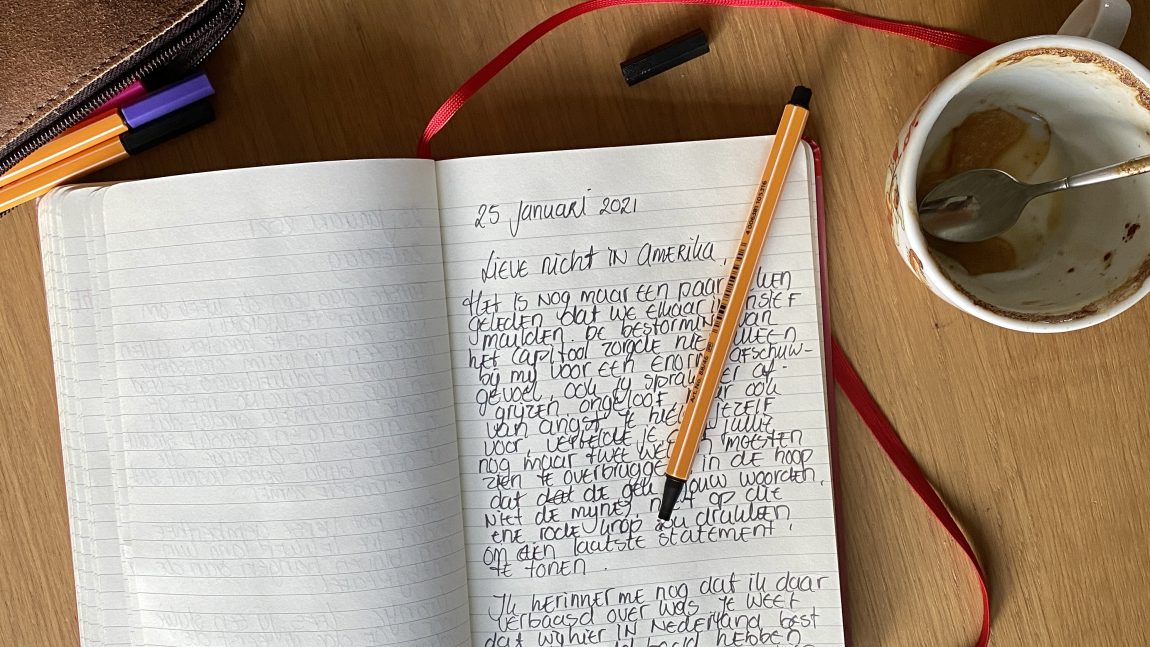 25 Januari 2021
Lieve nicht in Amerika,
Het is nog maar een paar
geleden dat we elkaar
mailden. De bestorming van
het Capitool zorgde
bij mij voor een enorm afschuw-
gevoel, ook jij sprak er af-
grijzen, ongeloof, maar ook
van angst. Je hield jezelf
voor, vertelde je jullie
nog maar twee moesten
zien te overbruggen in de hoop
dat deet de gek jouw woorden,
niet de mijne, niet op die
ene rode knop zou drukken
om een laatste statement
te tonen.
Ik herinner me nog dat ik daar
verbaasd over was. Je weet
dat wij hier in Nederland best
beeld hebben